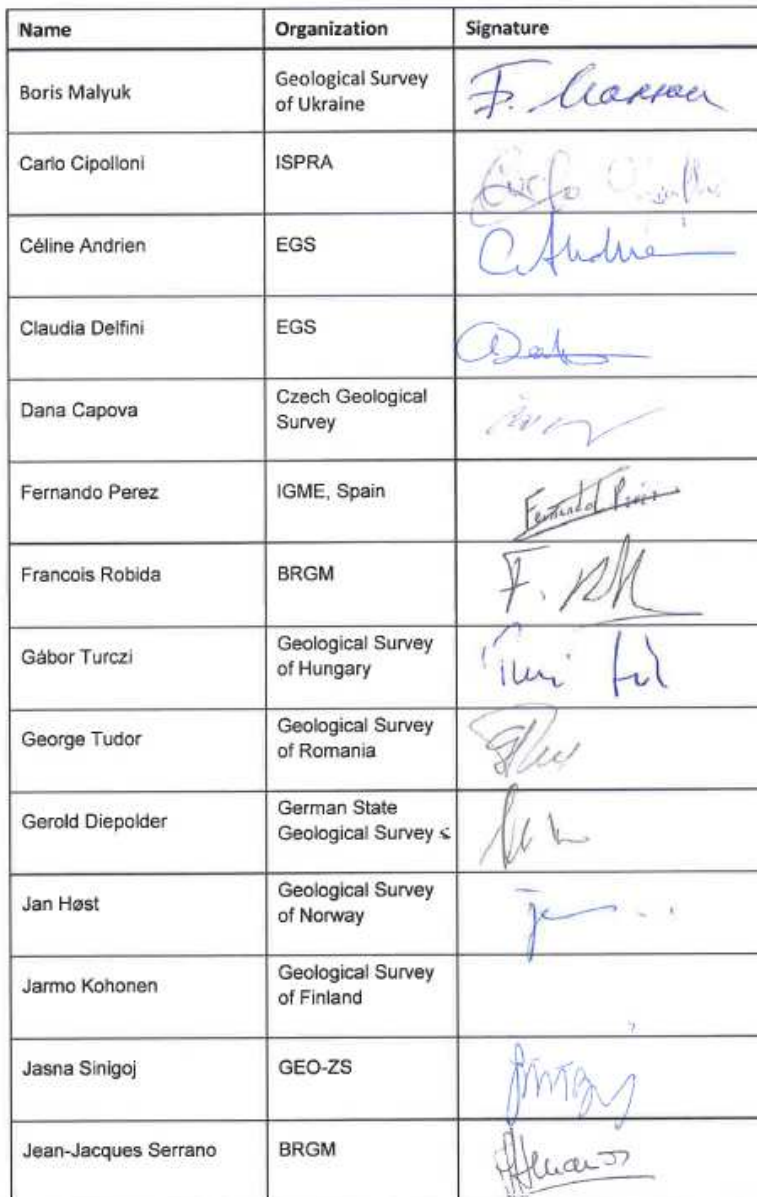 Name Organization Signature
Boris Malyuk Geological Survey
of Ukraine
Carlo Cipolloni ISPRA
Céline Andrien EGS
Claudia Delfini EGS
Dana Capova Czech Geological
Survey
Fernando Perez IGME, Spain
Francois Robida BRGM
Gábor Turczi Geological Survey
of Hungary
George Tudor Geological Survey
of Romania
Gerold Diepolder German State
Geological Survey s
Jan Høst Geological Survey
of Norway
Jarmo Kohonen Geological Survey
of Finland
Jasna Sinigoj GEO-ZS
Jean-Jacques Serrano BRGM